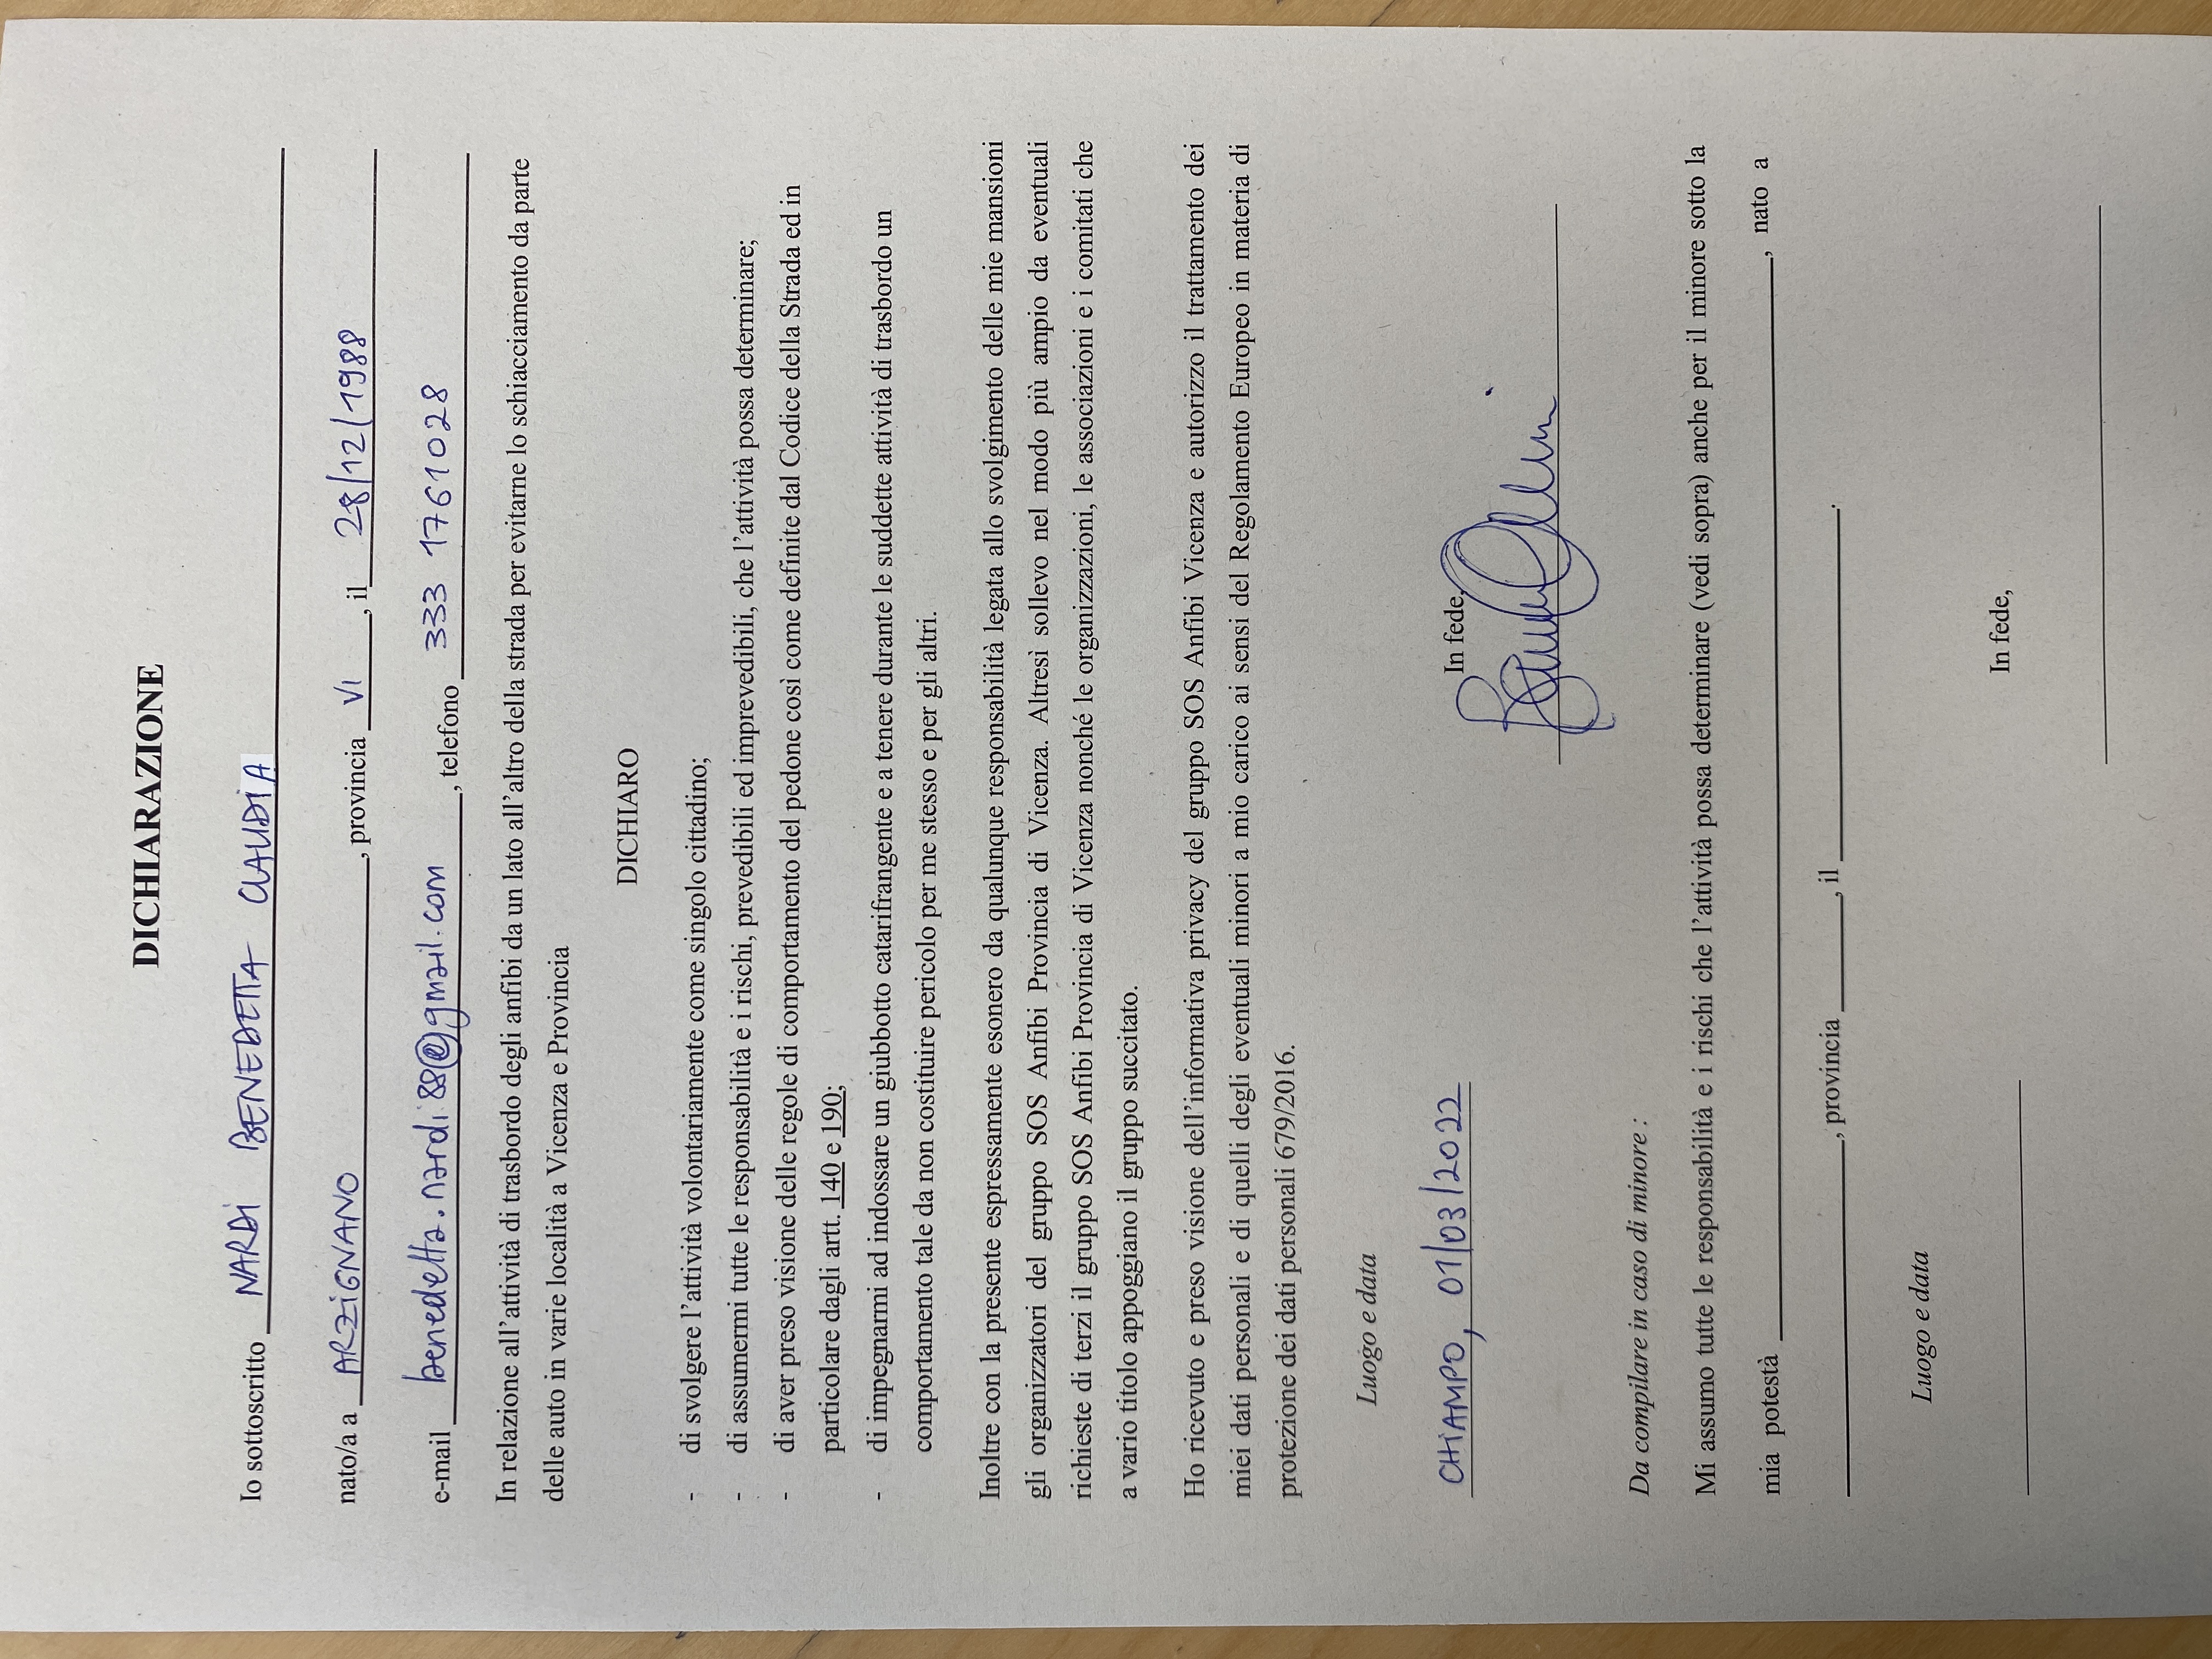 DICHIARAZIONE
Io sottoscritto NARDI BENEDETTA CLAUDIA
nato/a a ARZIGNANO, provincia VI, il 28/12/1988
e-mail benedetta.nardi88@gmail.com, telefono 333 1761028
In relazione all'attività di trasbordo degli anfibi da un lato all'altro della strada per evitarne lo schiacciamento da parte
delle auto in varie località a Vicenza e Provincia
DICHIARO
- di svolgere l'attività volontariamente come singolo cittadino;
- di assumermi tutte le responsabilità e i rischi, prevedibili ed imprevedibili, che l'attività possa determinare;
- di aver preso visione delle regole di comportamento del pedone così come definite dal Codice della Strada ed in
particolare dagli artt. 140 e 190;
- di impegnarmi ad indossare un giubbotto catarifrangente e a tenere durante le suddette attività di trasbordo un
comportamento tale da non costituire pericolo per me stesso e per gli altri.
Inoltre con la presente espressamente esonero da qualunque responsabilità legata allo svolgimento delle mie mansioni
gli organizzatori del gruppo SOS Anfibi Provincia di Vicenza. Altresì sollevo nel modo più ampio da eventuali
richieste di terzi il gruppo SOS Anfibi Provincia di Vicenza nonché le organizzazioni, le associazioni e i comitati che
a vario titolo appoggiano il gruppo succitato.
Ho ricevuto e preso visione dell'informativa privacy del gruppo SOS Anfibi Vicenza e autorizzo il trattamento dei
miei dati personali e di quelli degli eventuali minori a mio carico ai sensi del Regolamento Europeo in materia di
protezione dei dati personali 679/2016.
Luogo e data
CHIAMPO, 01/03/2022
In fede,
Da compilare in caso di minore :
Mi assumo tutte le responsabilità e i rischi che l'attività possa determinare (vedi sopra) anche per il minore sotto la
mia potestà , nato a
, provincia , il .
Luogo e data
In fede,